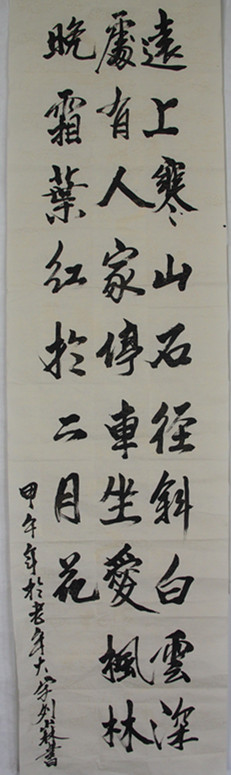 遠上寒山石径斜白雲深
處有人家停車坐愛楓林
晚霜葉红於二月花
甲午年於老年大学刘森書